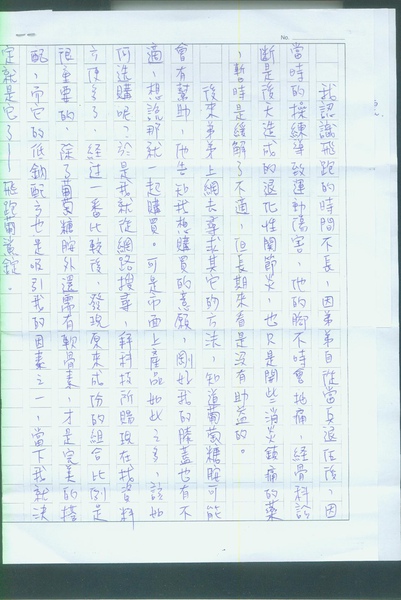 No.
我認識飛跑的時間不長，因弟弟自從當兵退伍後，因
當時的操練導致運動傷害，他的腳不時會抽痛，經骨科診
斷是後天造成的退化性關節炎，也只是開些消炎鎮痛的藥
，暫時是緩解了不適，但長期來看是沒有助益的。
後來弟弟上網去尋求其它的方法，知道葡萄糖胺可能
會有幫助，他告知我想購買的意願，剛好我的膝蓋也有不
適，想說那就一起購買。可是市面上產品如此之多，該如
何選購呢？於是我就從網路搜尋 拜科技所賜現在找資料
方便多了，經过一番比較後，發現原來成份的組合比例是
很重要的，除了葡萄糖胺外還需有軟骨素，才是完美的搭
配，而它的低鈉配方也是吸引我的因素之一，當下我就決
定就是它了──飛跑葡萄錠。